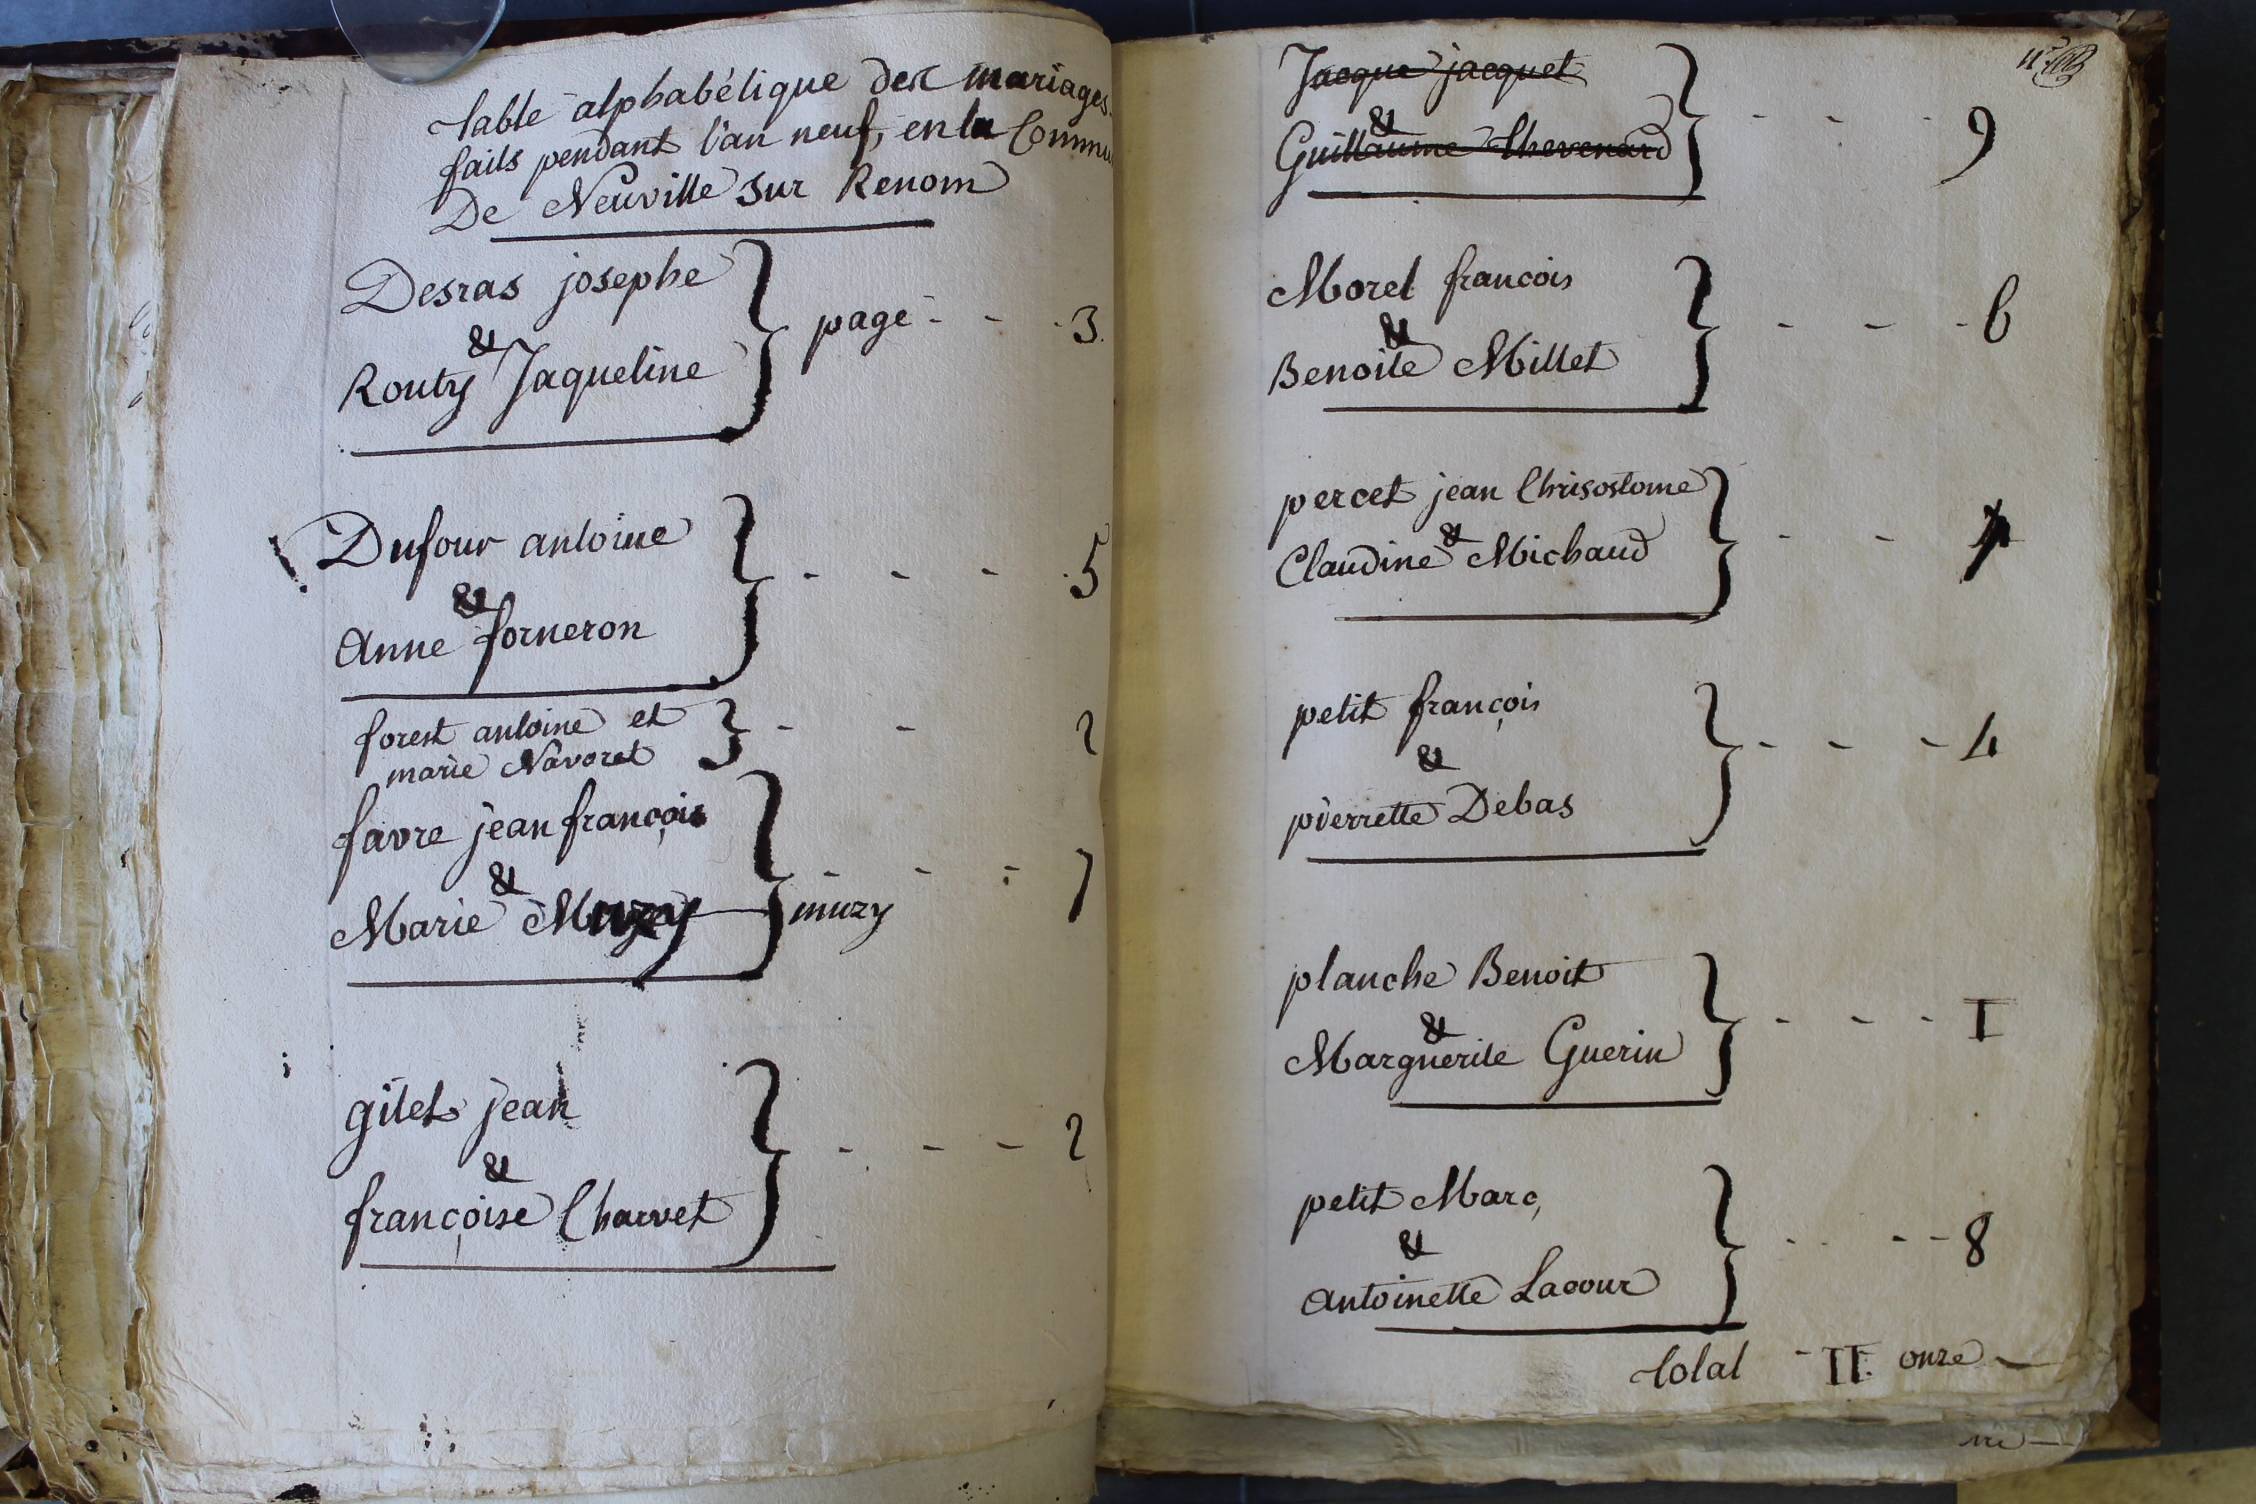 table alphabétique des mariages
faits pendant l'an neuf, en la Commu
De Neuville sur Renom
Desras josephe
&
Routy Jaqueline
page - - - 3.
Dufour antoine
&
Anne forneron
- - - 5
forest antoine et
marie Navoret
- - 2
favre jean françois
&
Marie Muzy
muzy
- - - 7
gilet jean
&
françoise Charvet
- - - 2
Jacque jacquet
&
Guillaume Thevenard
- - - 9
Morel francois
&
Benoite Millet
- - - 6
percet jean Chrisostome
&
Claudine Michaud
- -
petit françois
&
pierrette Debas
- - - 4
planche Benoit
&
Marguerite Guerin
- - - I
petit Marc,
&
Antoinette Lacour
- - - - 8
total - II. onze